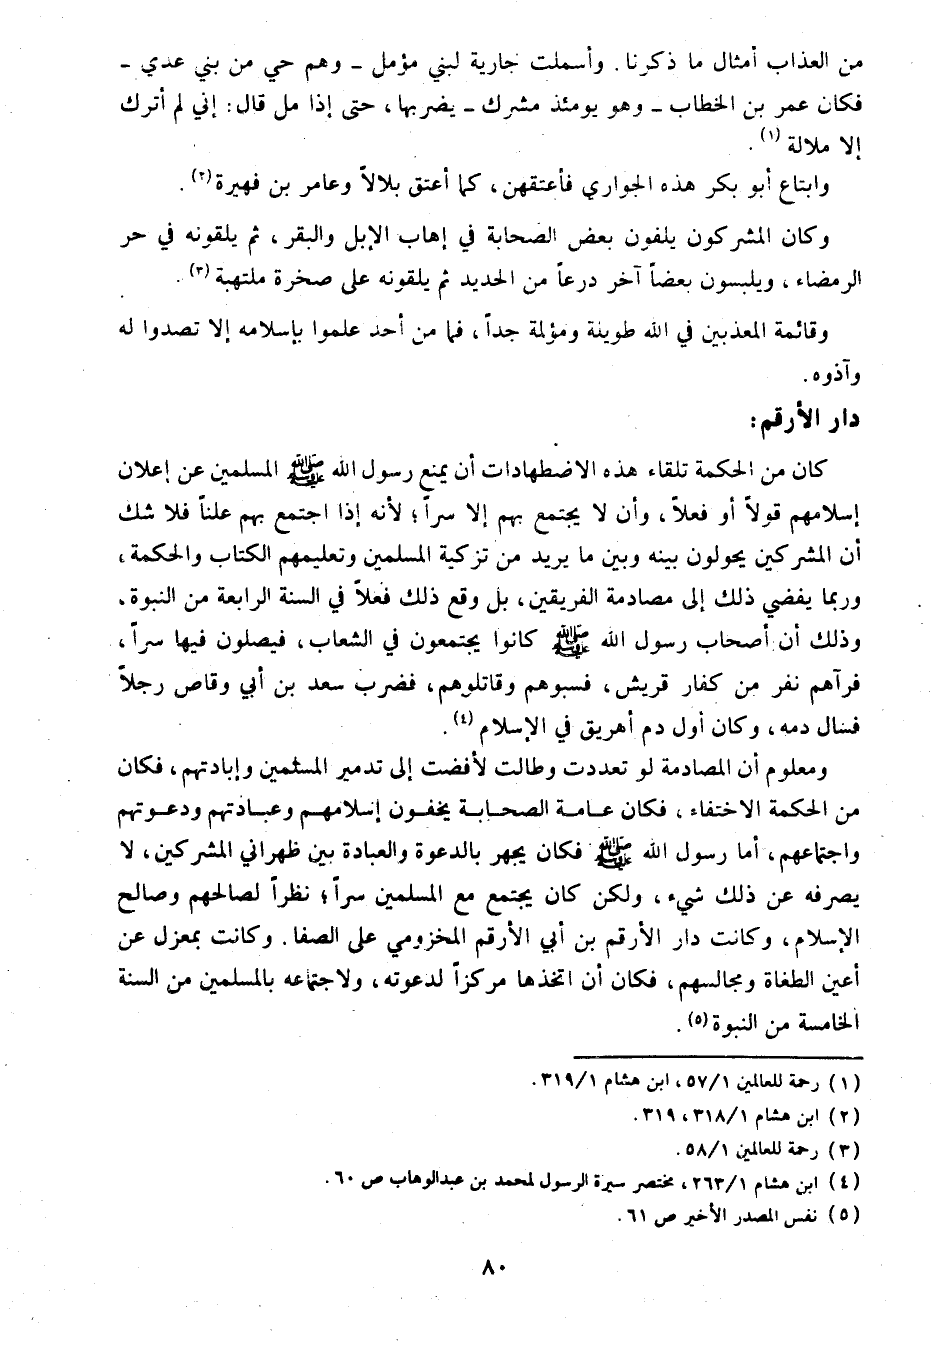 من العذاب أمثال ما ذكرنا. وأسملت جارية لبني مؤمل ـ وهم حي من بني عدي ـ
فكان عمر بن الخطاب ـ وهو يومئذ مشرك ـ يضربها، حتى إذا مل قال: إني لم أترك
إلا ملالة (١).
وابتاع أبو بكر هذه الجواري فأعتقهن، كما أعتق بلالاً وعامر بن فهيرة (٢).
وكان المشركون يلفون بعض الصحابة في إهاب الإبل والبقر، ثم يلقونه في حر
الرمضاء، ويلبسون بعضاً آخر درعاً من الحديد ثم يلقونه على صخرة ملتهبة (٣).
وقائمة المعذبين في الله طويلة ومؤلمة جداً، فما من أحد علموا بإسلامه إلا تصدوا له
وآذوه.
دار الأرقم:
كان من الحكمة تلقاء هذه الاضطهادات أن يمنع رسول الله ﷺ المسلمين عن إعلان
إسلامهم قولاً أو فعلاً، وأن لا يجتمع بهم إلا سراً؛ لأنه إذا اجتمع بهم علناً فلا شك
أن المشركين يحولون بينه وبين ما يريد من تزكية المسلمين وتعليمهم الكتاب والحكمة،
وربما يفضي ذلك إلى مصادمة الفريقين، بل وقع ذلك فعلاً في السنة الرابعة من النبوة،
وذلك أن أصحاب رسول الله ﷺ كانوا يجتمعون في الشعاب، فيصلون فيها سراً،
فرآهم نفر من كفار قريش، فسبوهم وقاتلوهم، فضرب سعد بن أبي وقاص رجلاً
فسال دمه، وكان أول دم أهريق في الإسلام (٤).
ومعلوم أن المصادمة لو تعددت وطالت لأفضت إلى تدمير المسلمين وإبادتهم، فكان
من الحكمة الاختفاء، فكان عامة الصحابة يخفون إسلامهم وعبادتهم ودعوتهم
واجتماعهم، أما رسول الله ﷺ فكان يجهر بالدعوة والعبادة بين ظهراني المشركين، لا
يصرفه عن ذلك شيء، ولكن كان يجتمع مع المسلمين سراً؛ نظراً لصالحهم وصالح
الإسلام، وكانت دار الأرقم بن أبي الأرقم المخزومي على الصفا. وكانت بمعزل عن
أعين الطغاة ومجالسهم، فكان أن اتخذها مركزاً لدعوته، ولاجتماعه بالمسلمين من السنة
الخامسة من النبوة (٥).
(١) رحمة للعالمين ٥٧/١، ابن هشام ٣١٩/١.
(٢) ابن هشام ٣١٨/١، ٣١٩.
(٣) رحمة للعالمين ٥٨/١.
(٤) ابن هشام ٢٦٣/١، مختصر سيرة الرسول لمحمد بن عبدالوهاب ص ٦٠.
(٥) نفس المصدر الأخير ص ٦١.
٨٠